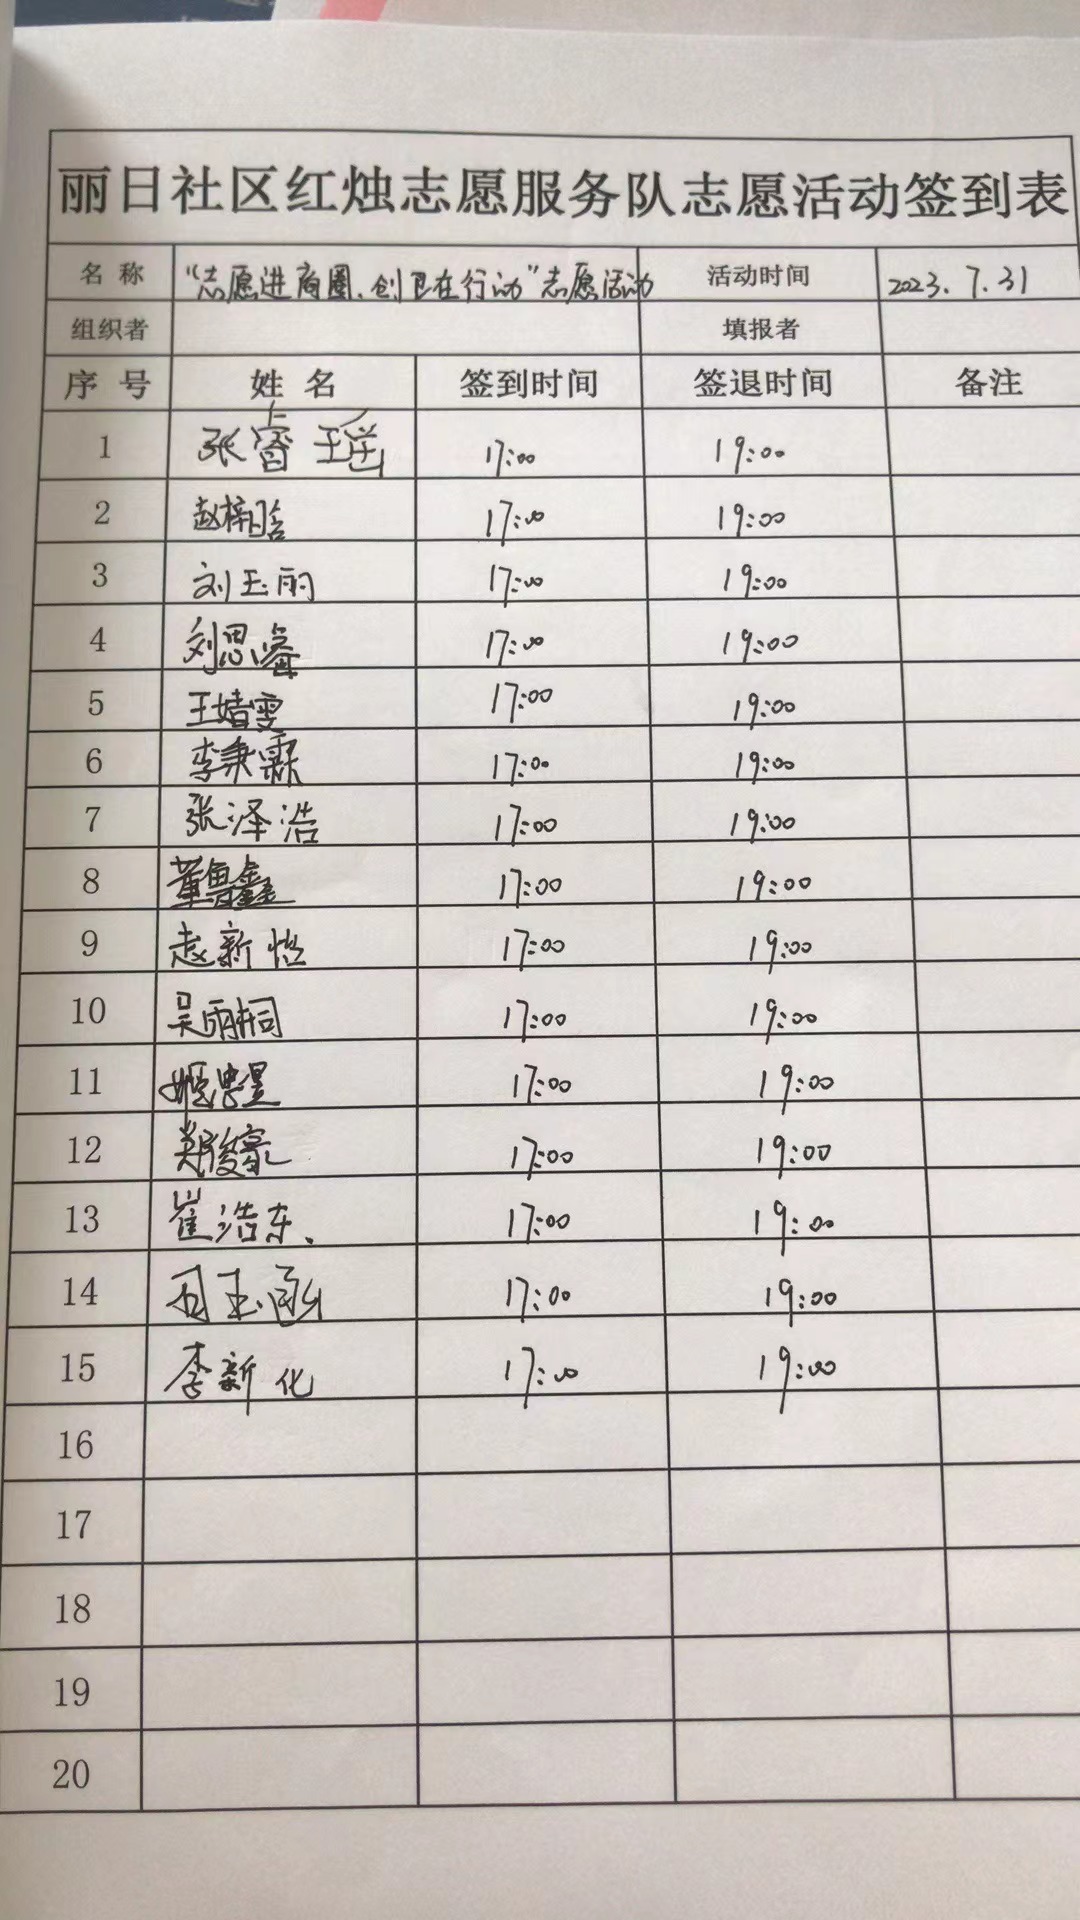 丽日社区红烛志愿服务队志愿活动签到表
名 称 “志愿进商圈、创卫在行动”志愿活动 活动时间 2023.7.31
组织者 填报者
序 号 姓 名 签到时间 签退时间 备注
1 张睿瑶 17:00 19:00
2 赵梓晗 17:00 19:00
3 刘玉雨 17:00 19:00
4 刘思睿 17:00 19:00
5 王婧雯 17:00 19:00
6 李秉霖 17:00 19:00
7 张泽浩 17:00 19:00
8 董鲁鑫 17:00 19:00
9 赵新怡 17:00 19:00
10 吴雨桐 17:00 19:00
11 姬忠昱 17:00 19:00
12 郑俊豪 17:00 19:00
13 崔浩东、 17:00 19:00
14 玉函 17:00 19:00
15 李新化 17:00 19:00
16
17
18
19
20